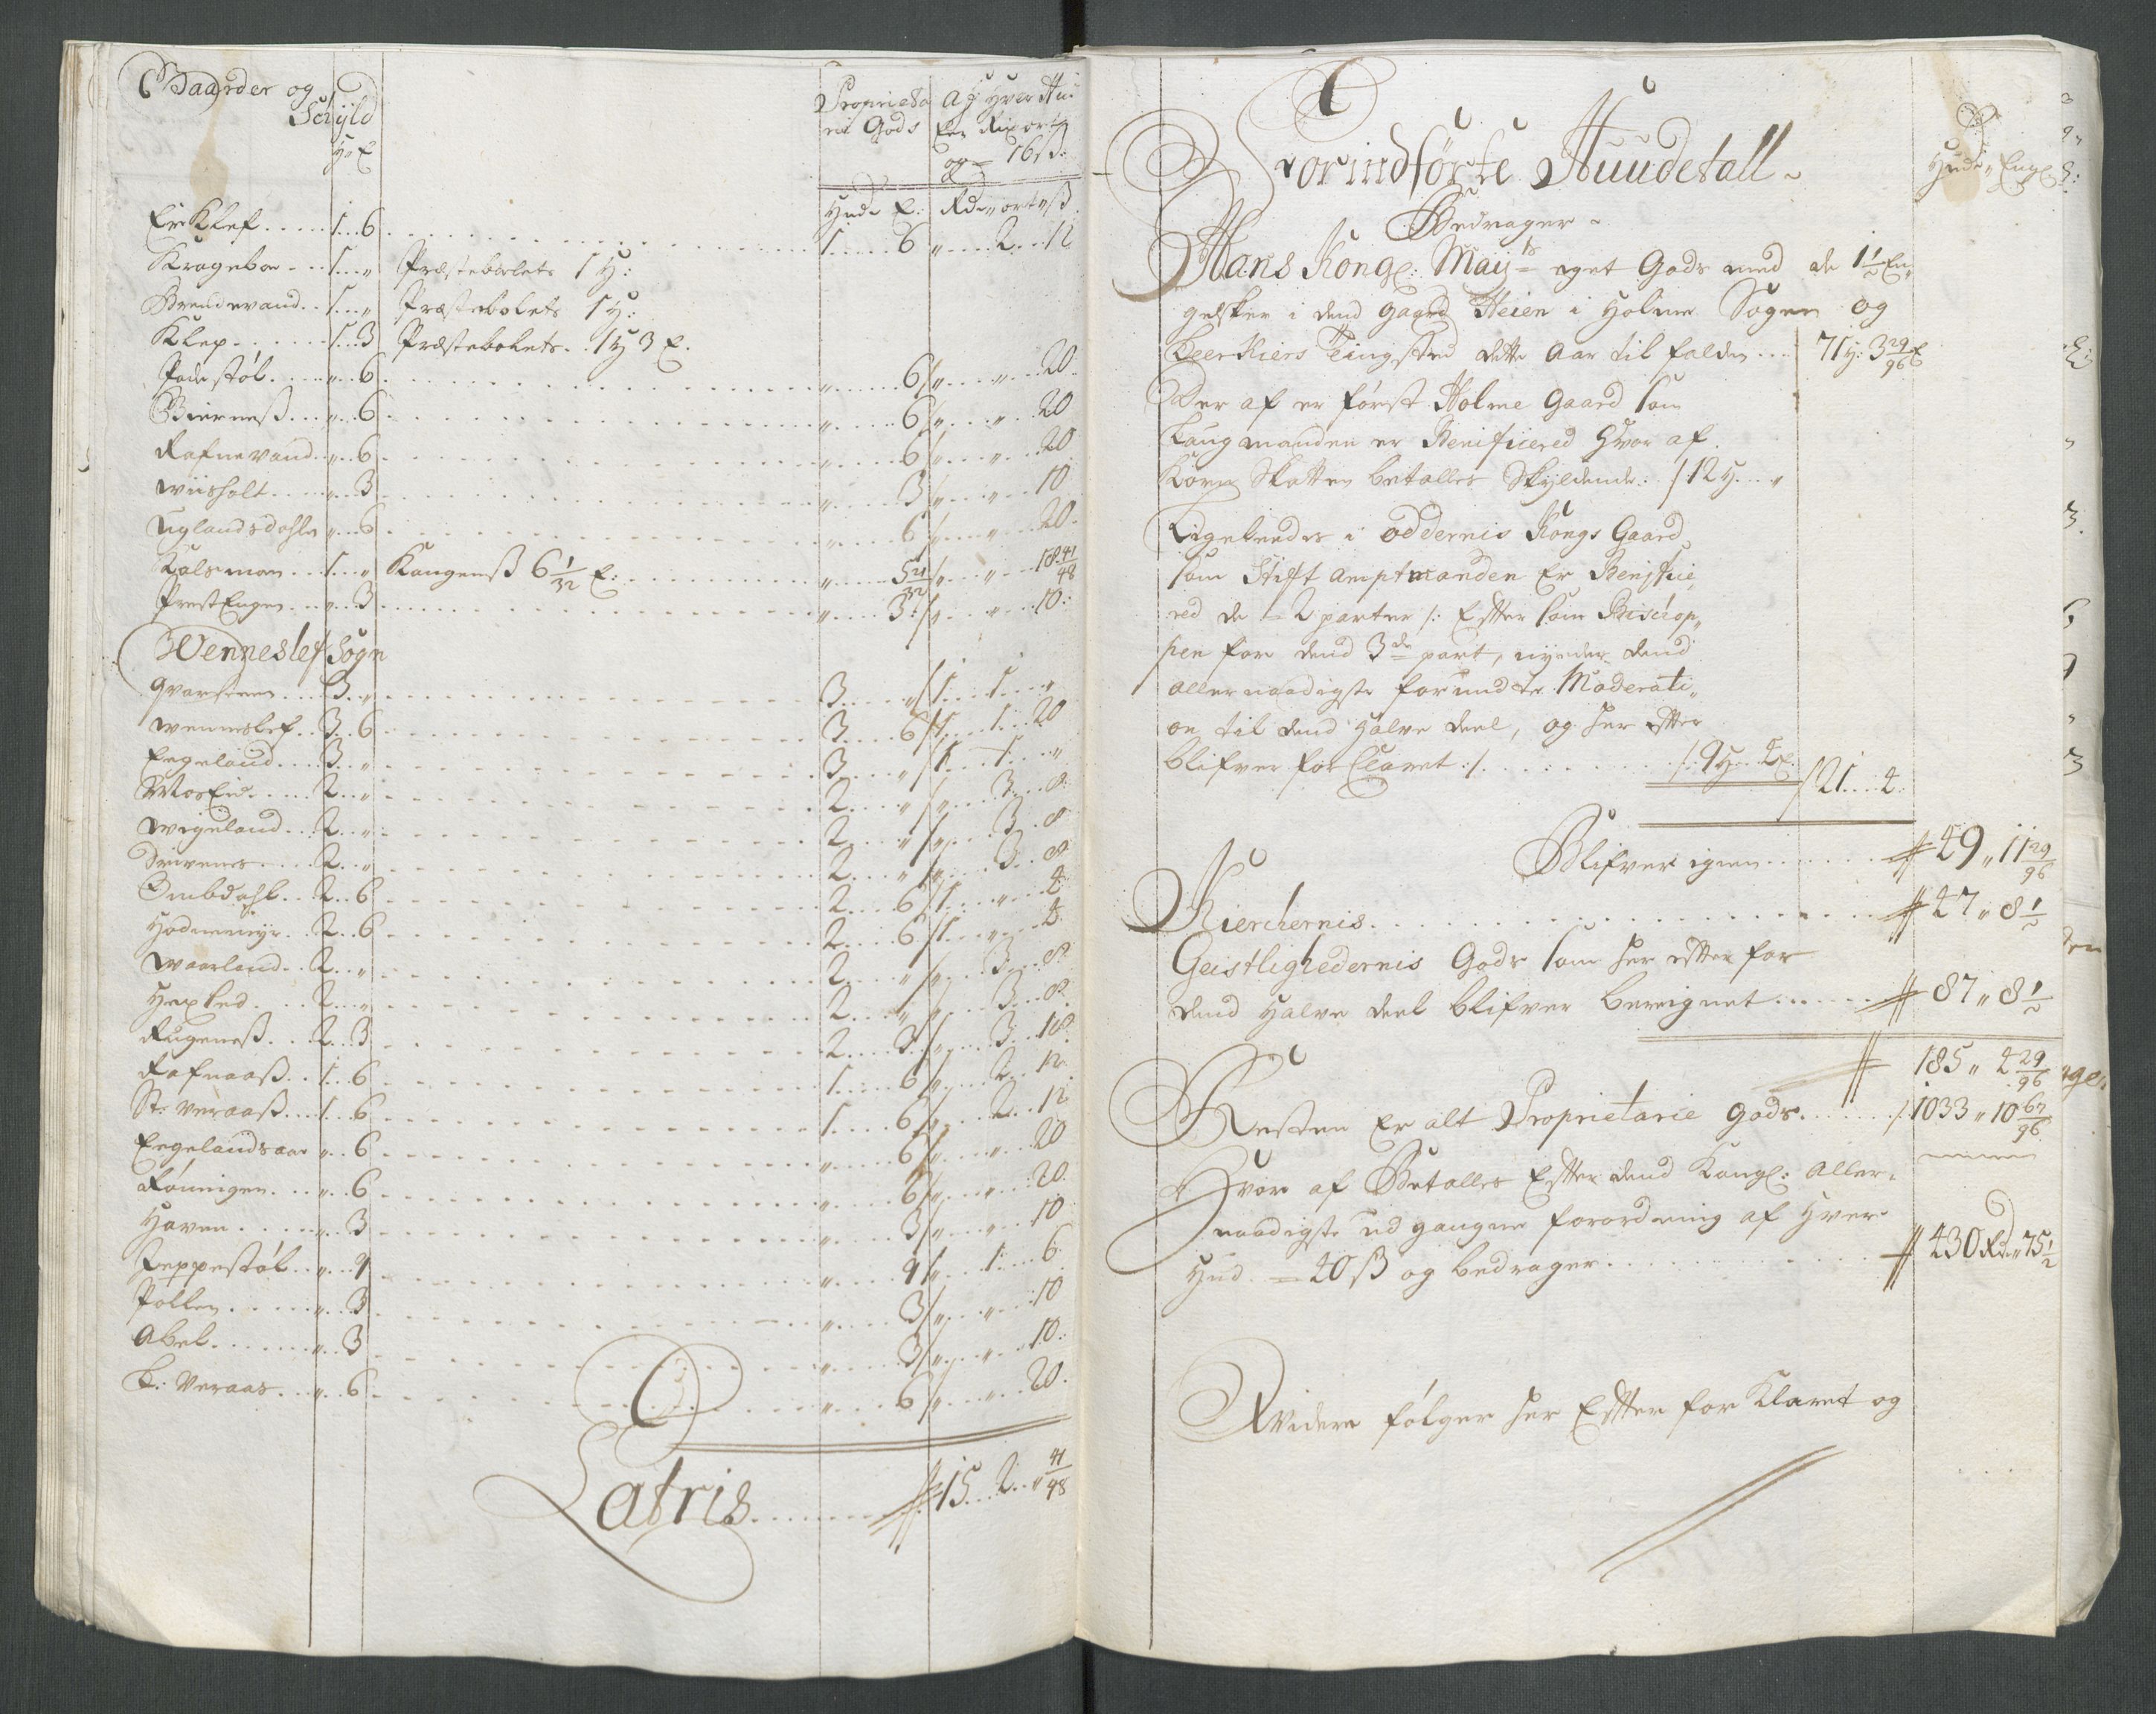 Gaarder og
Schyld
H: E
Proprieta
rie Gods
Aff hver Hu:
Een Rixort
og = 16 ß:
Hud: E:
Rd: ort ß
Erklef . . . . . 1 . . 6 . . . . . 1 . . . . 6 " . . . 2 . . 12
Krageboe . . . 1 . . " Præstebolets 1 H:
Brendevand . . 1 . . " Præstebolets 1 H:
Klep . . . . . 1 . . 3 Præstebolets . . 1 H 3 E.
Padestøl . . . . " . . 6 . . . . . " . . . . 6 " . . . " . . 20
Bierneß . . . " . . 6 . . . . . " . . . . 6 " . . . " . . 20
Rafnevand . . " . . 6 . . . . . " . . . . 6 " . . . " . . 20
Wiisholt . . . . " . . 3 . . . . . " . . . . 3 " . . . " . . 10
Uglandsdahle " . . 6 . . . . . " . . . . 6 " . . . " . . 20
Kalsman . . . 1 . . " Kongenß 6 1/32 E: . . . . . " . . . . 5 21/32 " . . . " . . 18 41/48
PrestEngen . . " . . 3 . . . . . " . . . . 3: " . . . " . . 10:
Wenneslef Sogn
Qvarsteen . . . 3 . . " . . . . . 3 . . . . " 1 . . . 1 . . "
Wenneslef . . 3 . . 6 . . . . . 3 . . . . 6 1 . . . 1 . . 20
Eegeland . . . 3 . . " . . . . . 3 . . . . " 1 . . . 1 . . "
MosEid . . . . 2 . . " . . . . . 2 . . . . " " . . . 3 . . 8
Wigeland . . . 2 . . " . . . . . 2 . . . . " " . . . 3 . . 8
Drivenes . . . . 2 . . " . . . . . 2 . . . . " " . . . 3 . . 8
Ombdahl . . 2 . . 6 . . . . . 2 . . . . 6 1 . . . " . . 4
Hodnemyr . . 2 . . 6 . . . . . 2 . . . . 6 1 . . . " . . 4
Waarland . . 2 . . " . . . . . 2 . . . . " " . . . 3 . . 8
Hepled . . . 2 . . " . . . . . 2 . . . . " " . . . 3 . . 8
Rugeneß . . 2 . . 3 . . . . . 2 . . . . 3 " . . . 3 . . 18
Rafnaaß . . 1 . . 6 . . . . . 1 . . . . 6 " . . . 2 . . 12
St: Veraaß . . . 1 . . 6 . . . . . 1 . . . . 6 " . . . 2 . . 12
Eegelandsaae " . . 6 . . . . . " . . . . 6 " . . . " . . 20
Rønnigen . . . " . . 6 . . . . . " . . . . 6 " . . . " . . 20
Haven . . . . " . . 3 . . . . . " . . . . 3 " . . . " . . 10
Jeppestøl . . " . . 9 . . . . . " . . . . 9 " . . . 1 . . 6
Pollen . . . . " . . 3 . . . . . " . . . . 3 " . . . " . . 10
Abel . . . . . . " . . 3 . . . . . " . . . . 3 " . . . " . . 10:
L: Veraas . . " . . 6 . . . . . " . . . . 6 " . . . " . . 20
Latris . . . . . . 15 . . 2 . . " 41/48
Forindførte Huudetall
Hude " Engl:
Bedrager
Hans Kongl: May:ts eget Gods med de 1 1/2 En¬
gelsker i dend Gaard Heien i Holme Sogen og
Leerkiers Tingsted dette Aar til falden . . . 71 H: 3 29/96 E
Der af er først Holme Gaard som
Laugmanden er Benificered Hvor af
Korn Skatten betalles Skyldende: / 12 H . . "
Ligeledes i Oddernis Kongs Gaard
som Stift amptmanden Er Benifici¬
red de = 2 parter /: Efter som Bischop¬
pen for dend 3de part, nyeder dend
aller naadigste forundte Moderati¬
on til dend Halve deel, og her efter
blifver for Claret :/ . . . . . . . 9 H . 4 E
21 . . . 4
Blifver igien . . . . . . 49 " 11 29/96
Kierchernis . . . . . . . . . 47 " 8 1/2
Geistlighedernis Gods som her efter for
dend Halve deel blifver bereignet . . . . . . 87 " 8 1/2
185 " 4 29/96
Resten Er alt Proprietarie Gods . . . . . . 1033 " 10 67/96
Hvor af Betalles Efter dend Kongl: Aller¬
naadigste ud gangne forordning af Hver
Hud = 40 ß og bedrager . . . . . . . . . 430 Rd: " 75 1/2
Widere følger her Efter for Klaret og